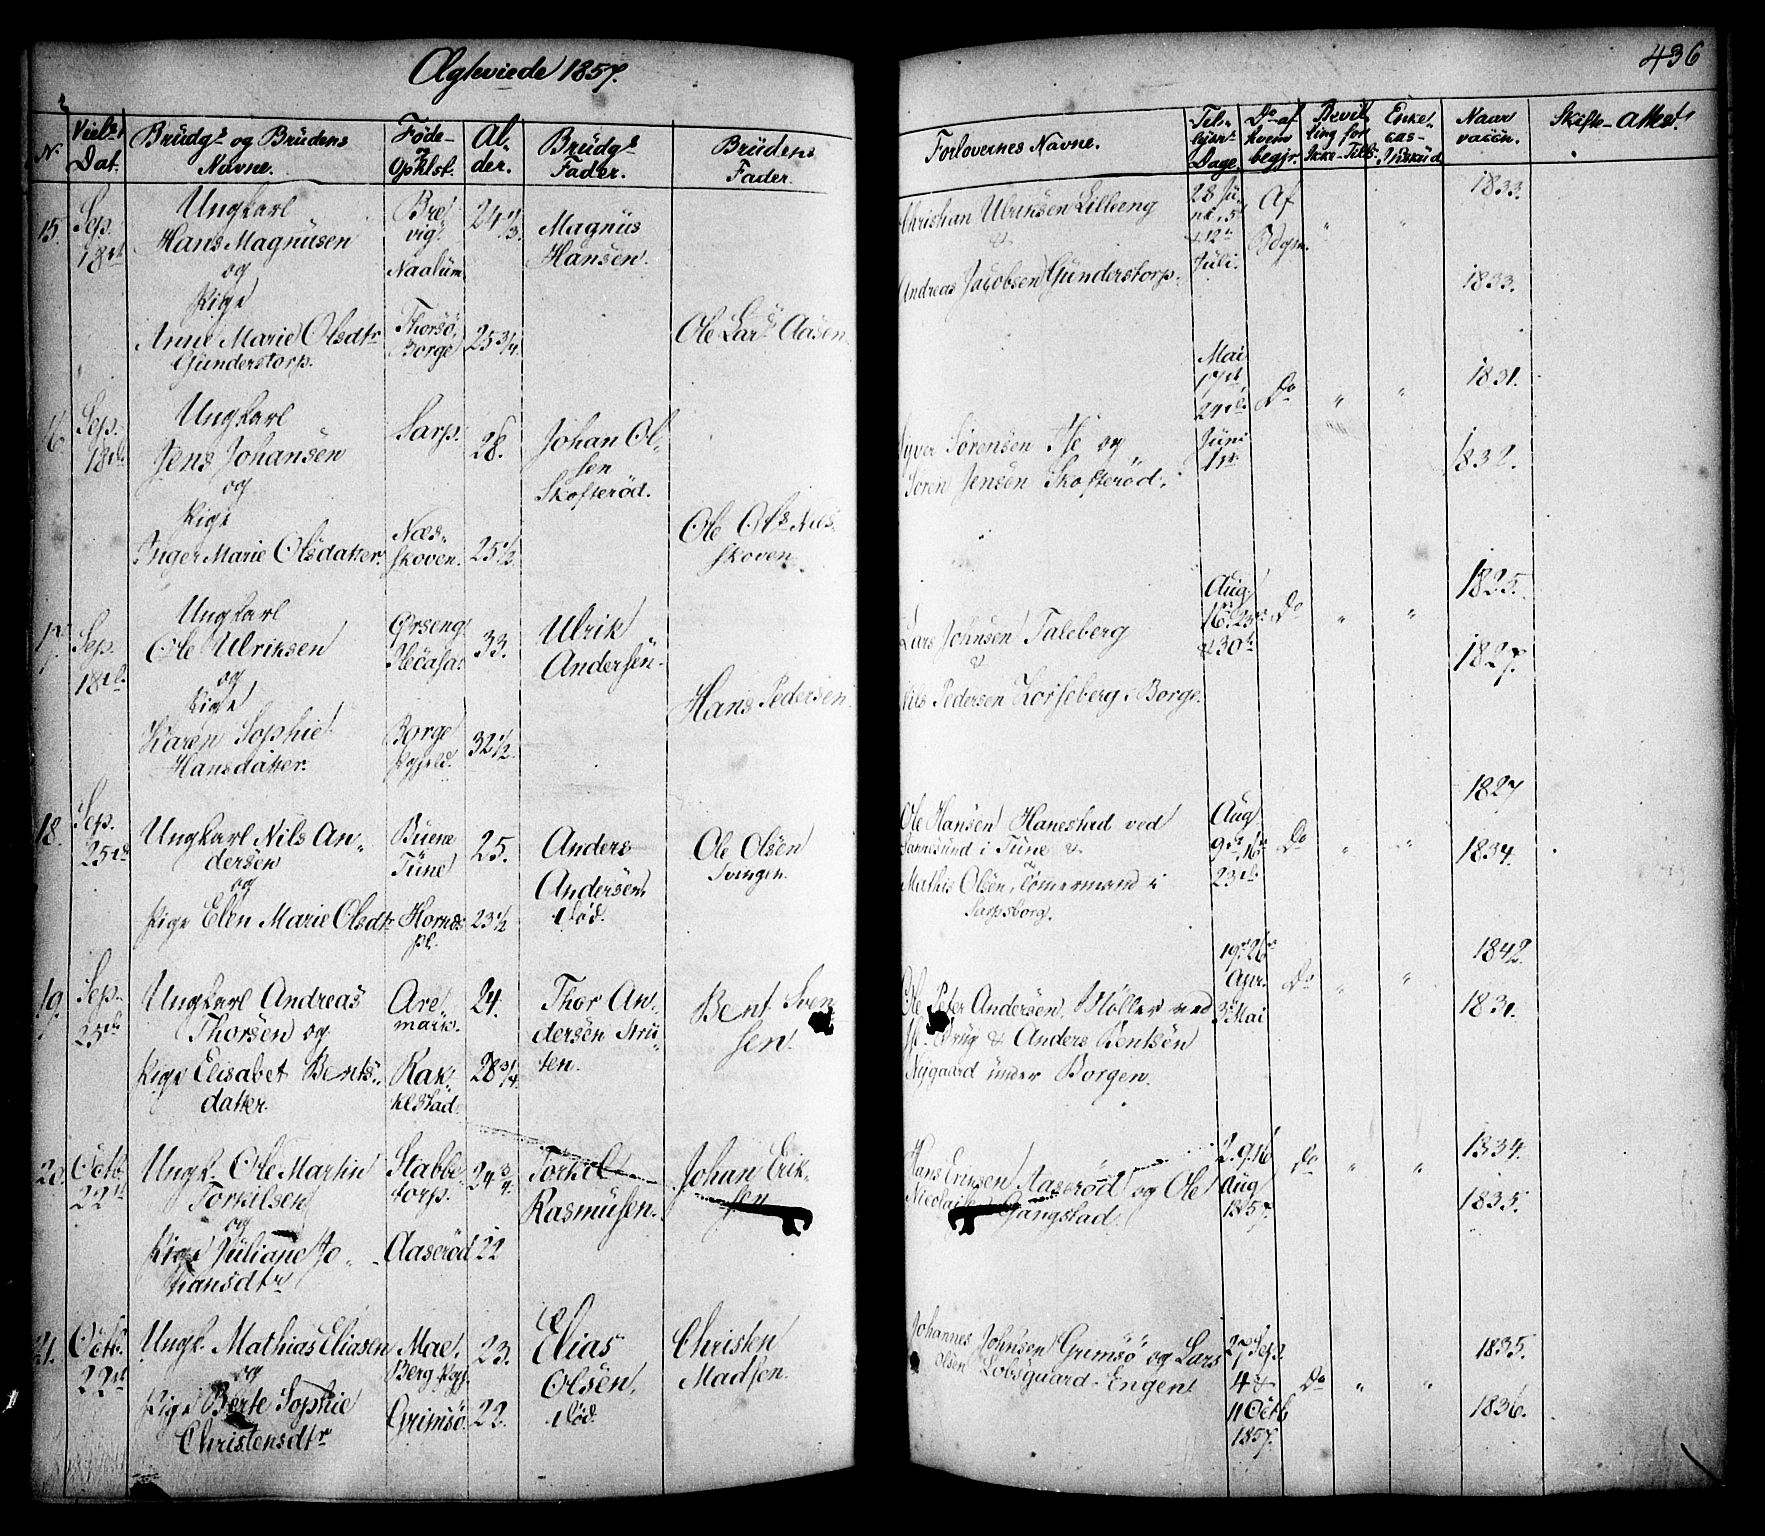 Ægteviede 1857.
436
No
Viels
Dat.
Brudgs og Brudens
Navne.
Føde-
og
Opholst.
Al-
der.
Brudgs
Fader.
Brudens
Fader.
Forlovernes Navne.
Til-
lysn:
Dage.
Do af
hvem
begjr.
Bevil-
ling for
Ikke-Tills:
Enke-
cas-
Udskud
Naar
vaccin.
Skifte-attest.
15.
Sep.
18de
Ungkarl
Hans Magnusen
og
Pige
Anne Marie Olsdtr
Gunderstorp.
Bre-
vig.
Naalum
Thorsø,
Borge
24 1/3.
25 3/4.
Magnus
Hansen.
Ole Lars Aasen
Christian Ulriksen Lilleeng
&
Andreas Jacobsen Gunderstorp.
28 Ju-
ni, 5te
& 12te
Juli.
Af
Bdgm.
"
"
1833.
1833.
16
Sep.
18de
Ungkarl
Jens Johansen
og
Pige
Inger Marie Olsdatter.
Sarp.
Næs-
skoven.
28.
25 1/2.
Johan Ol-
sen
Skofterød.
Ole Ols Næs-
skoven.
Syver Sørensen Ise og
Søren Jensen Skofterød.
Mai
17de
24de
Juni
1ste
Do
"
"
1831.
1832.
17
Sep.
18de
Ungkarl
Ole Ulriksen
og
Pige
Karen Sophie
Hansdatter.
Ørseng
Borge
33.
32 1/2.
Ulrik
Andersen.
Hans Pedersen.
Lars Johnsen Taleberg
&
Nils Pedersen Torseberg i Borge.
Aug
16de 23de
& 30te
Do
"
"
1825.
1827.
18.
Sep.
25de
Ungkarl Nils An-
dersen
og
Pige Elen Marie Olsdtr
Buene
Tune
Hornæs
pl.
25.
23 1/2
Anders
Andersen,
død.
Ole Olsen
Svingen.
Ole Hansen Hanestad ved
Sannesund i Tune &
Mathis Olsen, Tømmermand i
Sarpsborg.
Aug
9de, 16de
23de
Do
"
"
1827
1834.
19.
Sep.
25de
Ungkarl Andreas
Thorsen og
Pige Elisabet Bents-
datter.
Are-
mark.
Rak-
kestad.
24.
28 3/4.
Thor An-
dersen Stru-
ten.
Bent Sven-
sen.
Ole Peter Andersen, Møller ved
Ise-Brug & Anders Bentsen
Nygaard under Borgen.
19de 26de
Apr.
3de Mai
Do
"
"
1842.
1831.
20.
Octb.
22de
Ungk. Ole Martin
Torkilsen
og
Pige Juliane Jo-
hansdtr
Stabbe-
torp.
Aaserød
24 3/4.
22
Torkel
Rasmusen.
Johan Erik-
sen
Hans Ericksen Aaserød og Ole
Nicolaisen Gangstad.
2. 9. 16
Aug
1857.
Do
"
"
1834.
1835.
21.
Octb.
22de
Ungk. Mathias Eliasen
og
Pige Berte Sophie
Christensdtr
Berg Pgj.
Grimsø.
23.
22.
Elias
Olsen,
død.
Christen
Madsen.
Johannes Johnsen Grimsø og Lars
Olsen Lobsguard-Engen
27 Sep.
4 &
11 Octb
1857.
Do
"
"
1835.
1836.